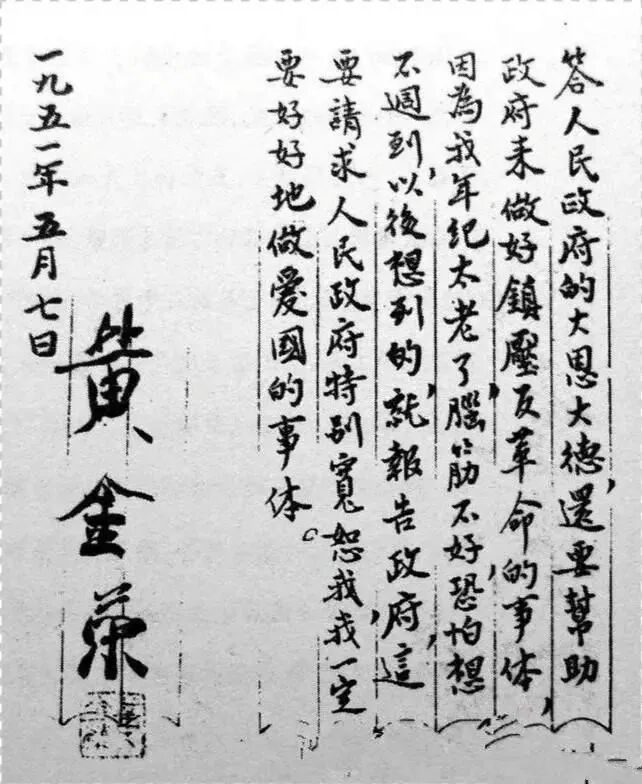 答人民政府的大恩大德，還要幫助
政府来做好鎮壓反革命的事体，
因為我年纪太老了，腦筋不好，恐怕想
不週到，以後想到的，就報告政府，這
要請求人民政府特别寬恕我，我一定
要好好地做愛國的事体。
一九五一年五月七日
黄金荣